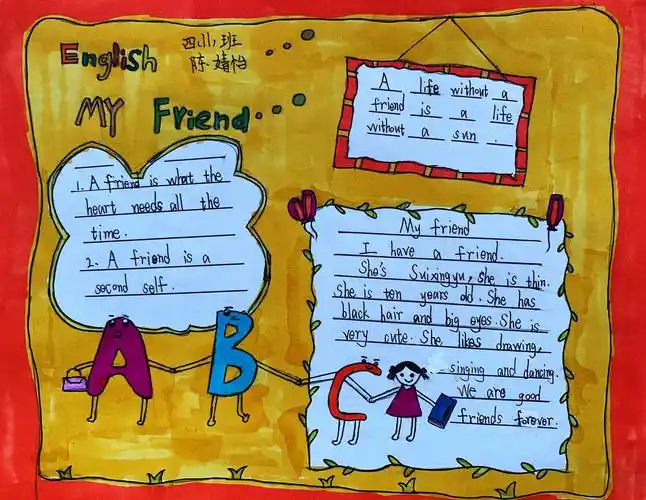 English
四(1)班
陈婧怡
MY Friend
A life without a
friend is a life
without a sun .
1. A friend is what the
heart needs all the
time.
2. A friend is a
second self.
My friend
I have a friend.
She's Suixingyu, She is thin.
She is ten years old. She has
black hair and big eyes. She is
very cute. She likes drawing,
singing and dancing.
We are good
friends forever.
A B C